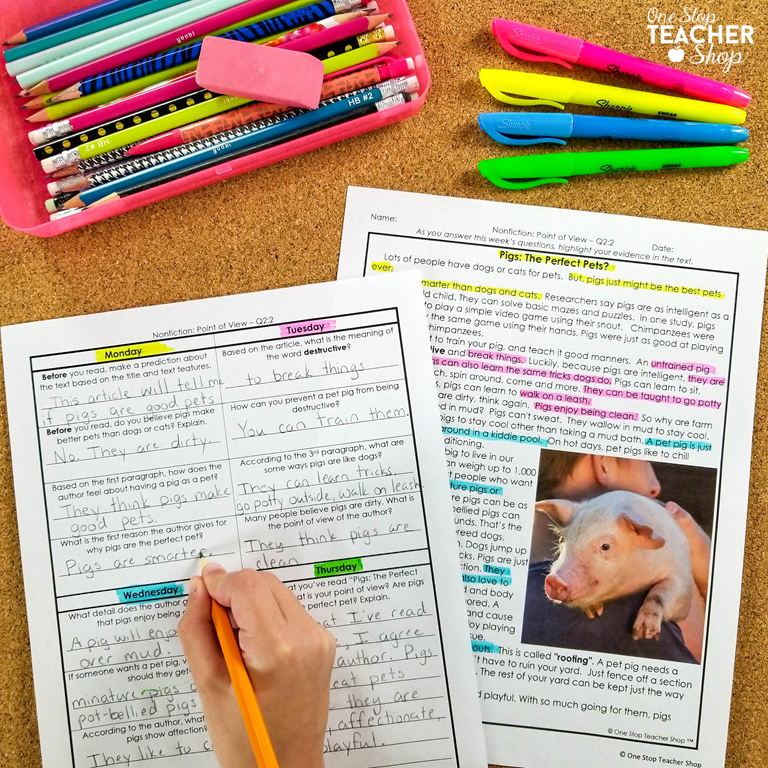 One Stop
TEACHER
Shop
yoobi
HB #2
HB #2
Sharpie
Sharpie
Sharpie
Name:
Nonfiction: Point of View – Q2:2
Date:
As you answer this week's questions, highlight your evidence in the text.
Pigs: The Perfect Pets?
Lots of people have dogs or cats for pets. But, pigs just might be the best pets
ever.
smarter than dogs and cats. Researchers say pigs are as intelligent as a
old child. They can solve basic mazes and puzzles. In one study, pigs
to play a simple video game using their snout. Chimpanzees were
the same game using their hands. Pigs were just as good at playing
himpanzees.
to train your pig, and teach it good manners. An untrained pig
ive and break things. Luckily, because pigs are intelligent, they are
gs can also learn the same tricks dogs do. Pigs can learn to sit,
ch, spin around, come and more. They can be taught to go potty
pigs can learn to walk on a leash.
are dirty, think again. Pigs enjoy being clean. So why are farm
d in mud? Pigs can't sweat. They wallow in mud to stay cool.
igs to stay cool other than taking a mud bath. A pet pig is just
around in a kiddie pool. On hot days, pet pigs like to chill
ditioning.
big to live in our
an weigh up to 1,000
t people who want
ture pigs or
re pigs can be as
bellied pigs can
unds. That's the
reed dogs.
. Dogs jump up
cks. Pigs are just
ction. They
also love to
d and body
ored. A
and cause
oy playing
sue.
outs. This is called "rooting". A pet pig needs a
't have to ruin your yard. Just fence off a section
. The rest of your yard can be kept just the way
d playful. With so much going for them, pigs
© One Stop Teacher Shop ™
© One Stop Teacher Shop
Nonfiction: Point of View – Q2:2
Monday
Before you read, make a prediction about
the text based on the title and text features.
This article will tell me
if pigs are good pets
Before you read, do you believe pigs make
better pets than dogs or cats? Explain.
No. They are dirty.
Based on the first paragraph, how does the
author feel about having a pig as a pet?
They think pigs make
good pets.
What is the first reason the author gives for
why pigs are the perfect pet?
Pigs are smarter.
Tuesday
Based on the article, what is the meaning of
the word destructive?
to break things
How can you prevent a pet pig from being
destructive?
You can train them.
According to the 3rd paragraph, what are
some ways pigs are like dogs?
They can learn tricks,
go potty outside, walk on leash
Many people believe pigs are dirty. What is
the point of view of the author?
They think pigs are
clean
Wednesday
What detail does the author g
that pigs enjoy being clean?
A pig will enj
over mud.
If someone wants a pet pig, w
should they get?
minature pigs
pot-bellied pigs
According to the author, what
pigs show affection?
They like to c
Thursday
at you've read "Pigs: The Perfect
at is your point of view? Are pigs
perfect pet? Explain.
t I've read
, I agree
author. Pigs
eat pets
they are
, affectionate,
playful.